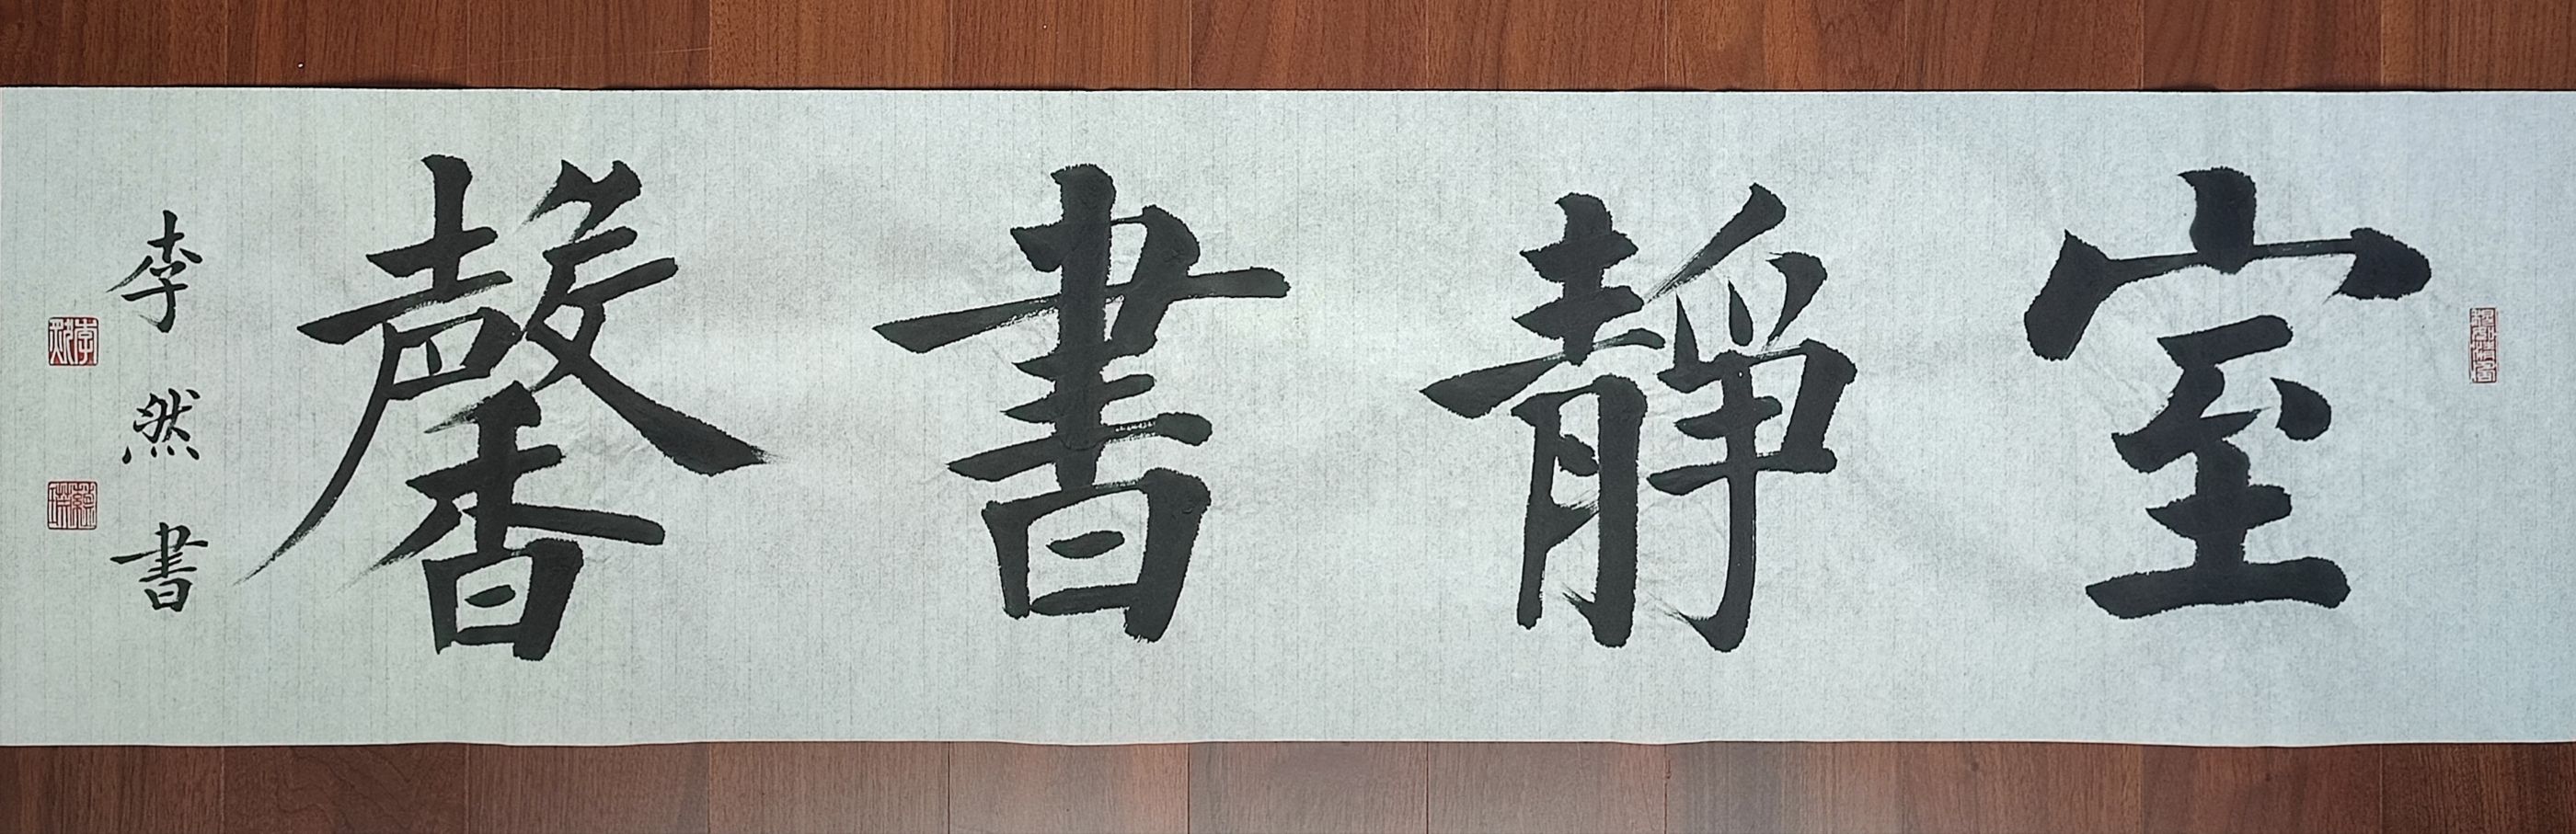 室靜書馨
李然書